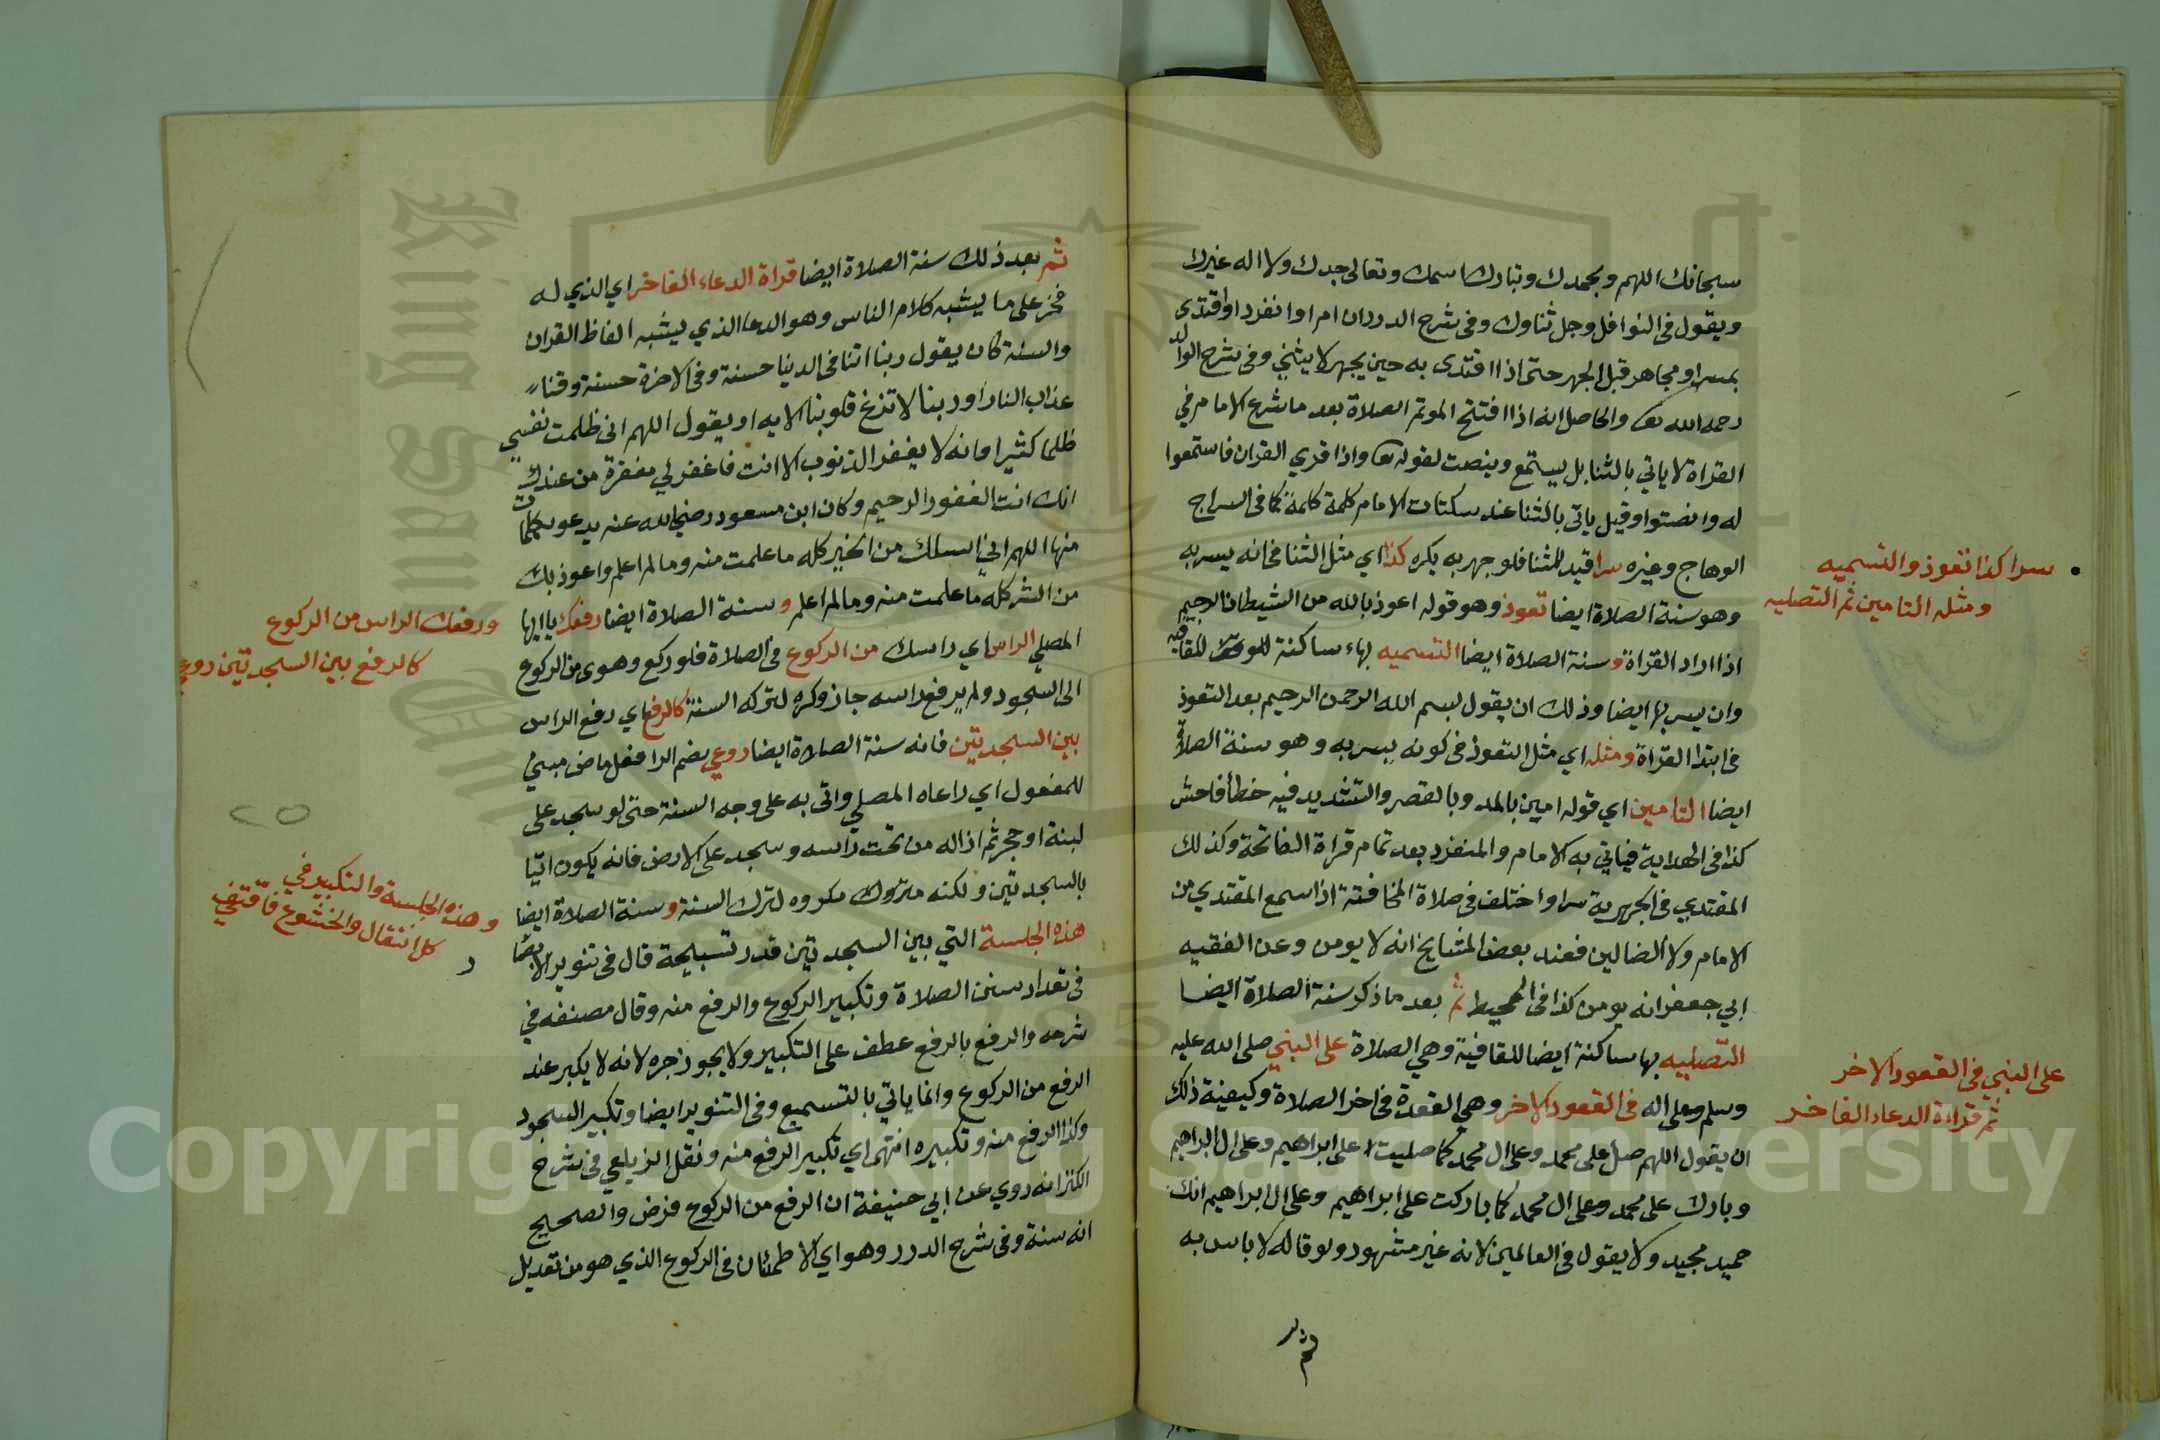 سبحانك اللهم وبحمدك وتبارك اسمك وتعالى جدك ولا اله غيرك
ويقول في النوافل وجل ثناوك وفي شرح الدرر ان ام او انفرد او اقتدى
بمسر او مجاهر قبل الجهر حتى اذا اقتدى به حين يجهر لا يثني وفي شرح الوالد
رحمه الله تعالى والحاصل انه اذا افتتح الموتم الصلاة بعد ما شرع الامام في
القراة لا ياتي بالثنا بل يستمع وينصت لقوله تعالى واذا قري القران فاستمعوا
له وانصتوا وقيل ياتي بالثنا عند سكتات الامام كلمة كلمة كما في السراج
الوهاج وغيره سرا قيد للثنا فلو جهر به يكره كذا اي مثل الثنا في انه يسر به
وهو سنة الصلاة ايضا تعوذ وهو قوله اعوذ بالله من الشيطان الرجيم
اذا اراد القراة وسنة الصلاة ايضا التسميه بهاء ساكنة للقافيه
وان يسر بها ايضا وذلك ان يقول بسم الله الرحمن الرحيم بعد التعوذ
في ابتدا القراة ومثله اي مثل التعوذ في كونه يسر به وهو سنة الصلاة
ايضا التامين اي قوله امين بالمد وبالقصر والتشديد فيه خطأ فاحش
كذا في الهداية فياتي به الامام والمنفرد بعد تمام قراة الفاتحة وكذلك
المقتدي في الجهرية سرا واختلف في صلاة المخافتة اذا سمع المقتدي من
الامام ولا الضالين فعند بعض المشايخ انه لا يومن وعن الفقيه
ابي جعفر انه يومن كذا في المحيط ثم بعد ما ذكر سنة الصلاة ايضا
التصليه بها ساكنة ايضا للقافية وهي الصلاة على النبي صلى الله عليه
وسلم وعلى اله في القعود الاخر وهي القعدة في اخر الصلاة وكيفية ذلك
ان يقول اللهم صل على محمد وعلى ال محمد كما صليت على ابراهيم وعلى ال ابراهيم
وبارك على محمد وعلى ال محمد كما باركت على ابراهيم وعلى ال ابراهيم انك
حميد مجيد ولا يقول في العالمين لانه غير مشهور ولو قاله لا باس به
ثم
سرا كذا تعوذ والتسميه
ومثله التامين ثم التصليه
على النبي في القعود الاخر
ثم قراءة الدعاء الفاخر
ثم بعد ذلك سنة الصلاة ايضا قراة الدعاء الفاخر اي الذي له
فخر على ما يشبه كلام الناس وهو الدعا الذي يشبه الفاظ القران
والسنة كان يقول ربنا اتنا في الدنيا حسنة وفي الاخرة حسنة وقنا
عذاب النار او ربنا لا تزغ قلوبنا الايه او يقول اللهم اني ظلمت نفسي
ظلما كثيرا وانه لا يغفر الذنوب الا انت فاغفر لي مغفرة من عندك
انك انت الغفور الرحيم وكان ابن مسعود رضي الله عنه يدعو بكلمات
منها اللهم اني اسالك من الخير كله ما علمت منه وما لم اعلم واعوذ بك
من الشر كله ما علمت منه وما لم اعلم وسنة الصلاة ايضا رفعك يا ايها
المصلي الراس اي راسك من الركوع في الصلاة فلو ركع وهوى من الركوع
الى السجود ولم يرفع راسه جاز وكره لتركه السنة كالرفع اي رفع الراس
بين السجدتين فانه سنة الصلاة ايضا روعي بضم الرا فعل ماض مبني
للمفعول اي راعاه المصلي واتى به على وجه السنة حتى لو سجد على
لبنة او حجر ثم ازاله من تحت راسه وسجد على الارض فانه يكون اتيا
بالسجدتين ولكنه متروك مكروه لترك السنة وسنة الصلاة ايضا
هذه الجلسة التي بين السجدتين قدر تسبيحة قال في تنوير الابصار
في تعداد سنن الصلاة وتكبير الركوع والرفع منه وقال مصنفه في
شرحه والرفع بالرفع عطف على التكبير ولا يجوز جره لانه لا يكبر عند
الرفع من الركوع وانما ياتي بالتسميع وفي التنوير ايضا وتكبير السجود
وكذا الرفع منه وتكبيره انتهى اي تكبير الرفع منه ونقل الزيلعي في شرح
الكنز انه روي عن ابي حنيفة ان الرفع من الركوع فرض والصحيح
انه سنة وفي شرح الدرر وهو اي الاطمئنان في الركوع الذي هو من تعديل
ورفعك الراس من الركوع
كالرفع بين السجدتين روعي
٢٥
وهذه الجلسة والتكبير في
كل انتقال والخشوع فاقتفي
King Saud University
1957
Copyright © King Saud University